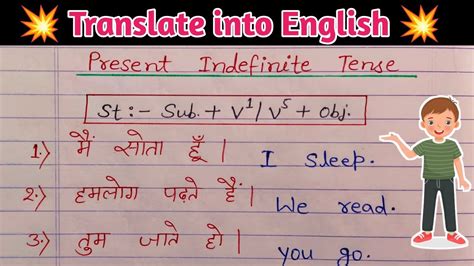 Translate into English
Present Indefinite Tense
St:- Sub. + V¹/V⁵ + Obj.
1.) मैं सोता हूँ। I sleep.
2.) हमलोग पढ़ते हैं। We read.
3.) तुम जाते हो। you go.